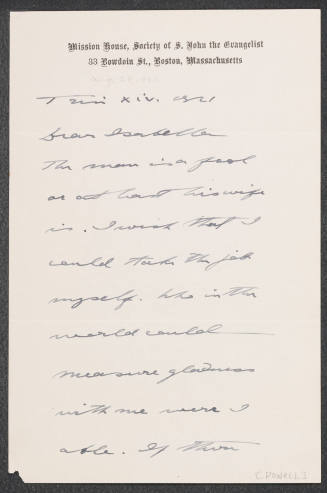 Mission House, Society of S. John the Evangelist
33 Bowdoin St., Boston, Massachusetts
Trin xiv. 1921
Dear Isabella
The man is a fool
or at least his wife
is. I wish that I
could take the job
myself. Who in the
world could
measure gladness
with me were I
able. If thou
( POWELL )